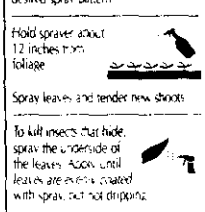 desired spray pattern
Hold sprayer about
12 inches from
foliage
Spray leaves and tender new shoots
To kill insects that hide,
spray the underside of
the leaves. Apply until
leaves are evenly coated
with spray, but not dripping.